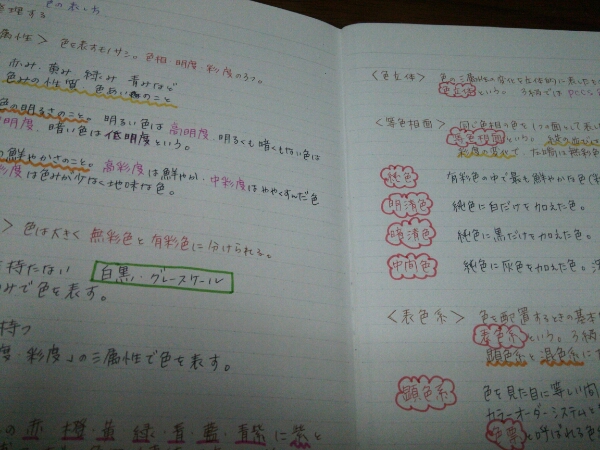 色の表し方
整理する
属性＞ 色を表すモノサシ。色相・明度・彩度の3つ。
赤み・黄み・緑み・青みなど
色みの性質、色あいのこと
色の明るさのこと。明るい色は高明度、明るくも暗くもない色は
明度、暗い色は低明度という。
の鮮やかさのこと。高彩度は鮮やか、中彩度はややくすんだ色
彩度は色みが少なく地味な色。
＞ 色は大きく 無彩色と有彩色に分けられる。
を持たない 白黒・グレースケール
みで色を表す。
持つ
度・彩度」の三属性で色を表す。
の 赤・橙・黄・緑・青・藍・青紫に紫と
＜色立体＞ 色の三属性の変化を立体的に表したもの
色立体という。う柄では PCCS
＜等色相面＞ 同じ色相の色を1つの面で表し
等色相面という。
純色 有彩色の中で最も鮮やかな色
明清色 純色に白だけを加えた色。
暗清色 純色に黒だけを加えた色。
中間色 純色に灰色を加えた色。
＜表色系＞ 色を配置するときの基本
表色系という。う柄
顕色系と混色系に
顕色系 色を見た目に等しい間
カラーオーダーシステムと
色票と呼ばれる色